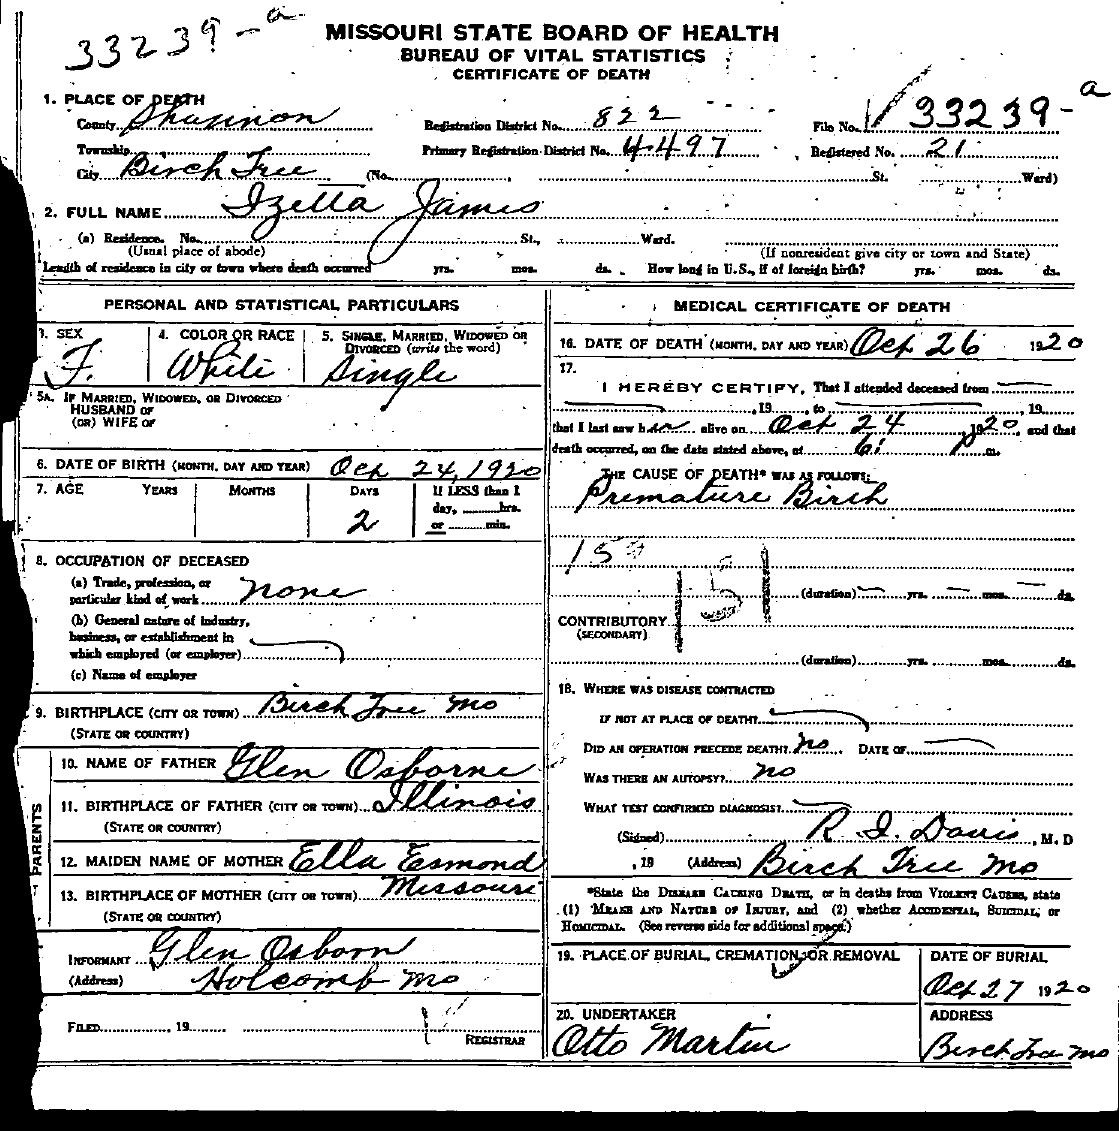 33239-a
MISSOURI STATE BOARD OF HEALTH
BUREAU OF VITAL STATISTICS
CERTIFICATE OF DEATH
1. PLACE OF DEATH
County Shannon Registration District No. 822 File No. 33239-a
Township Primary Registration District No. 4497 Registered No. 21
City Birch Tree (No. , St. Ward)
2. FULL NAME Izetta James
(a) Residence. No. St., Ward.
(Usual place of abode) (If nonresident give city or town and State)
Length of residence in city or town where death occurred yrs. mos. ds. How long in U.S., if of foreign birth? yrs. mos. ds.
PERSONAL AND STATISTICAL PARTICULARS
3. SEX 4. COLOR OR RACE 5. SINGLE, MARRIED, WIDOWED OR
DIVORCED (write the word)
F. White Single
5A. IF MARRIED, WIDOWED, OR DIVORCED
HUSBAND OF
(OR) WIFE OF
6. DATE OF BIRTH (MONTH, DAY AND YEAR) Oct 24, 1920
7. AGE YEARS MONTHS DAYS If LESS than 1
day, hrs.
2 or min.
8. OCCUPATION OF DECEASED
(a) Trade, profession, or
particular kind of work none
(b) General nature of industry,
business, or establishment in
which employed (or employer)
(c) Name of employer
9. BIRTHPLACE (CITY OR TOWN) Birch Tree Mo
(STATE OR COUNTRY)
PARENTS
10. NAME OF FATHER Glen Osborne
11. BIRTHPLACE OF FATHER (CITY OR TOWN) Illinois
(STATE OR COUNTRY)
12. MAIDEN NAME OF MOTHER Ella Esmond
13. BIRTHPLACE OF MOTHER (CITY OR TOWN) Missouri
(STATE OR COUNTRY)
INFORMANT Glen Osborn
(Address) Holcomb Mo
FILED , 19
REGISTRAR
MEDICAL CERTIFICATE OF DEATH
16. DATE OF DEATH (MONTH, DAY AND YEAR) Oct 26 1920
17.
I HEREBY CERTIFY, That I attended deceased from
, 19 , to , 19
that I last saw her alive on Oct 24, 1920, and that
death occurred, on the date stated above, at 6: P m.
THE CAUSE OF DEATH* WAS AS FOLLOWS:
Premature Birth
151
(duration) yrs. mos. ds.
CONTRIBUTORY
(SECONDARY)
(duration) yrs. mos. ds.
18. WHERE WAS DISEASE CONTRACTED
IF NOT AT PLACE OF DEATH?
DID AN OPERATION PRECEDE DEATH? no DATE OF
WAS THERE AN AUTOPSY? no
WHAT TEST CONFIRMED DIAGNOSIS?
(Signed) R. I. Davis, M. D
, 19 (Address) Birch Tree Mo
*State the DISEASE CAUSING DEATH, or in deaths from VIOLENT CAUSES, state
(1) MEANS AND NATURE OF INJURY, and (2) whether ACCIDENTAL, SUICIDAL, or
HOMICIDAL. (See reverse side for additional space.)
19. PLACE OF BURIAL, CREMATION, OR REMOVAL DATE OF BURIAL
Oct 27 1920
20. UNDERTAKER ADDRESS
Otto Martin Birch Tree Mo